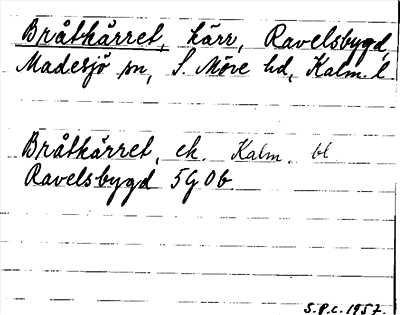 Bråtkärret, kärr, Ravelsbygd,
Madesjö sn, S. Möre hd, Kalm. l.
Bråtkärret, ek. Kalm. bl
Ravelsbygd 5G0b
S.P.C. 1957.